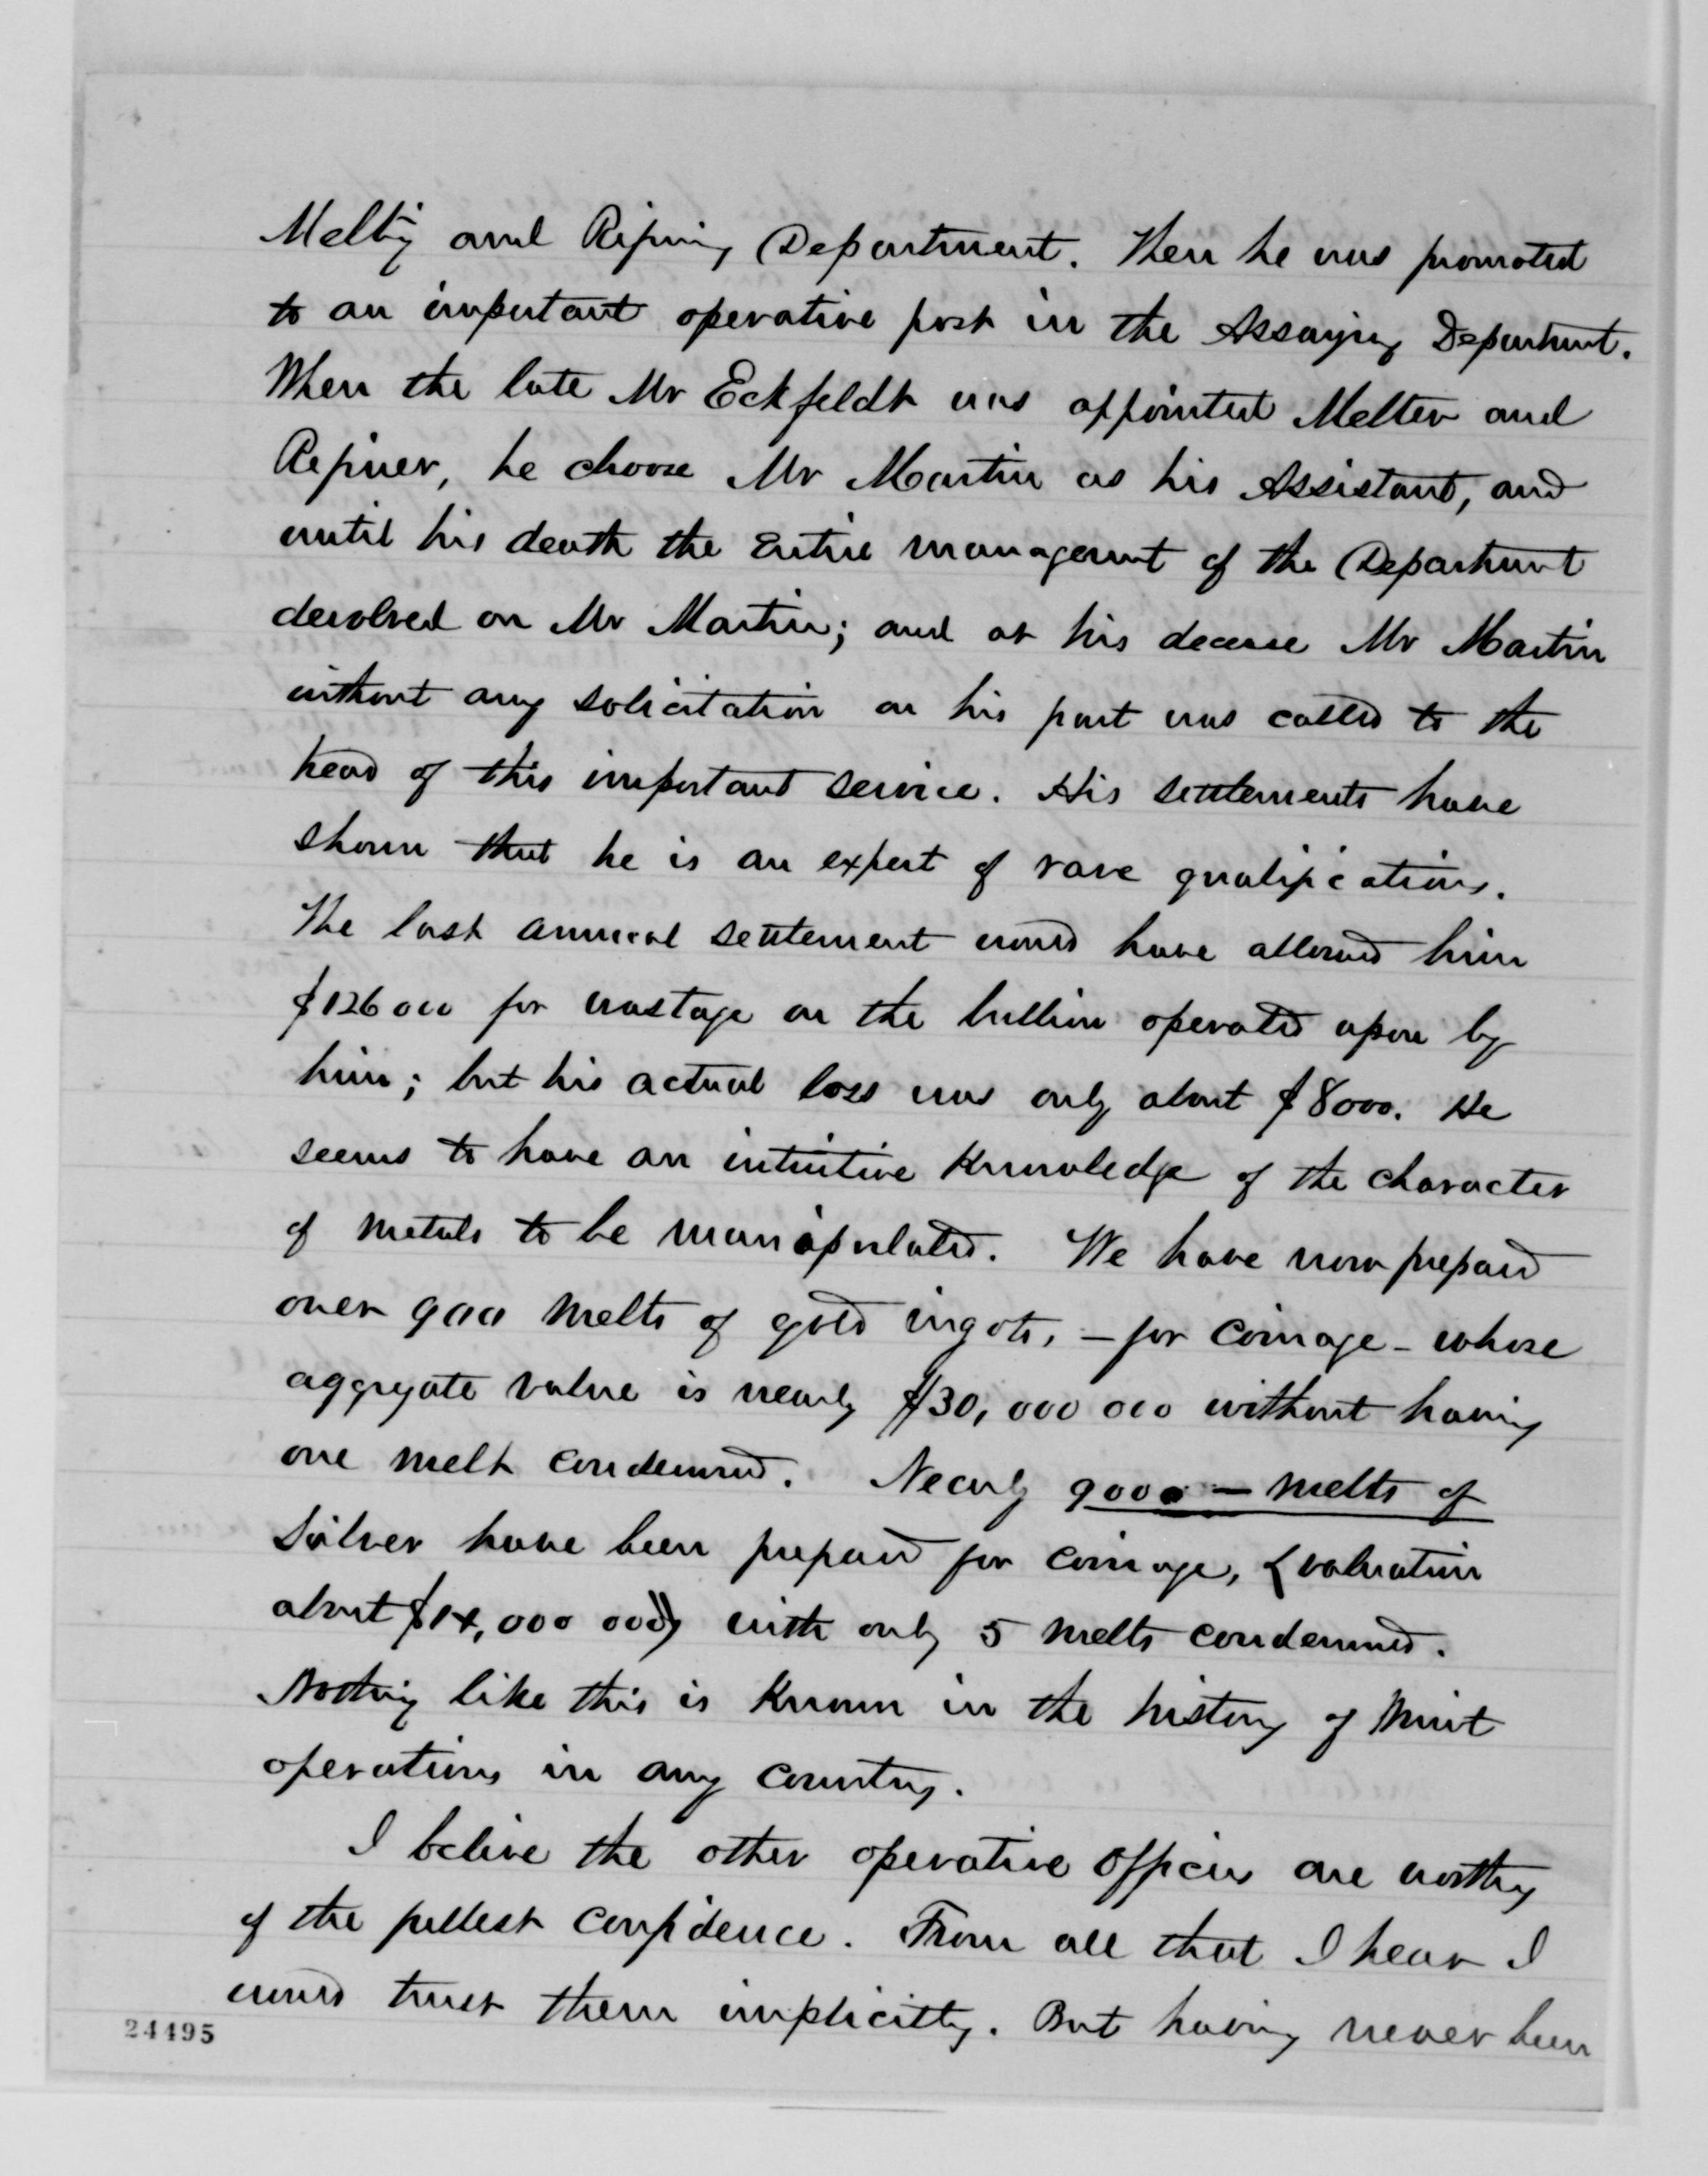 Melting and Refining Department. Then he was promoted
to an important operative post in the Assaying Department.
When the late Mr Eckfeldt was appointed Melter and
Refiner, he choose Mr Martin as his Assistant, and
until his death the entire management of the Department
devolved on Mr Martin; and at his decease Mr Martin
without any solicitation on his part was called to the
head of this important service. His settlements have
shown that he is an expert of rare qualifications.
The last annual settlement would have allowed him
$126000 for wastage on the bullion operated upon by
him; but his actual loss was only about $8000. He
seems to have an intuitive knowledge of the character
of metals to be manipulated. We have now prepared
over 900 melts of gold ingots, - for coinage - whose
aggregate value is nearly $30,000 000 without having
one melt condemned. Nearly 9000 - melts of
Silver have been prepared for coinage, (valuation
about $14,000 000) with only 5 melts condemned.
Nothing like this is known in the history of Mint
operations in any country.
I belive the other operative officers are worthy
of the fullest confidence. From all that I hear I
would trust them implicitly. But having never been
24495